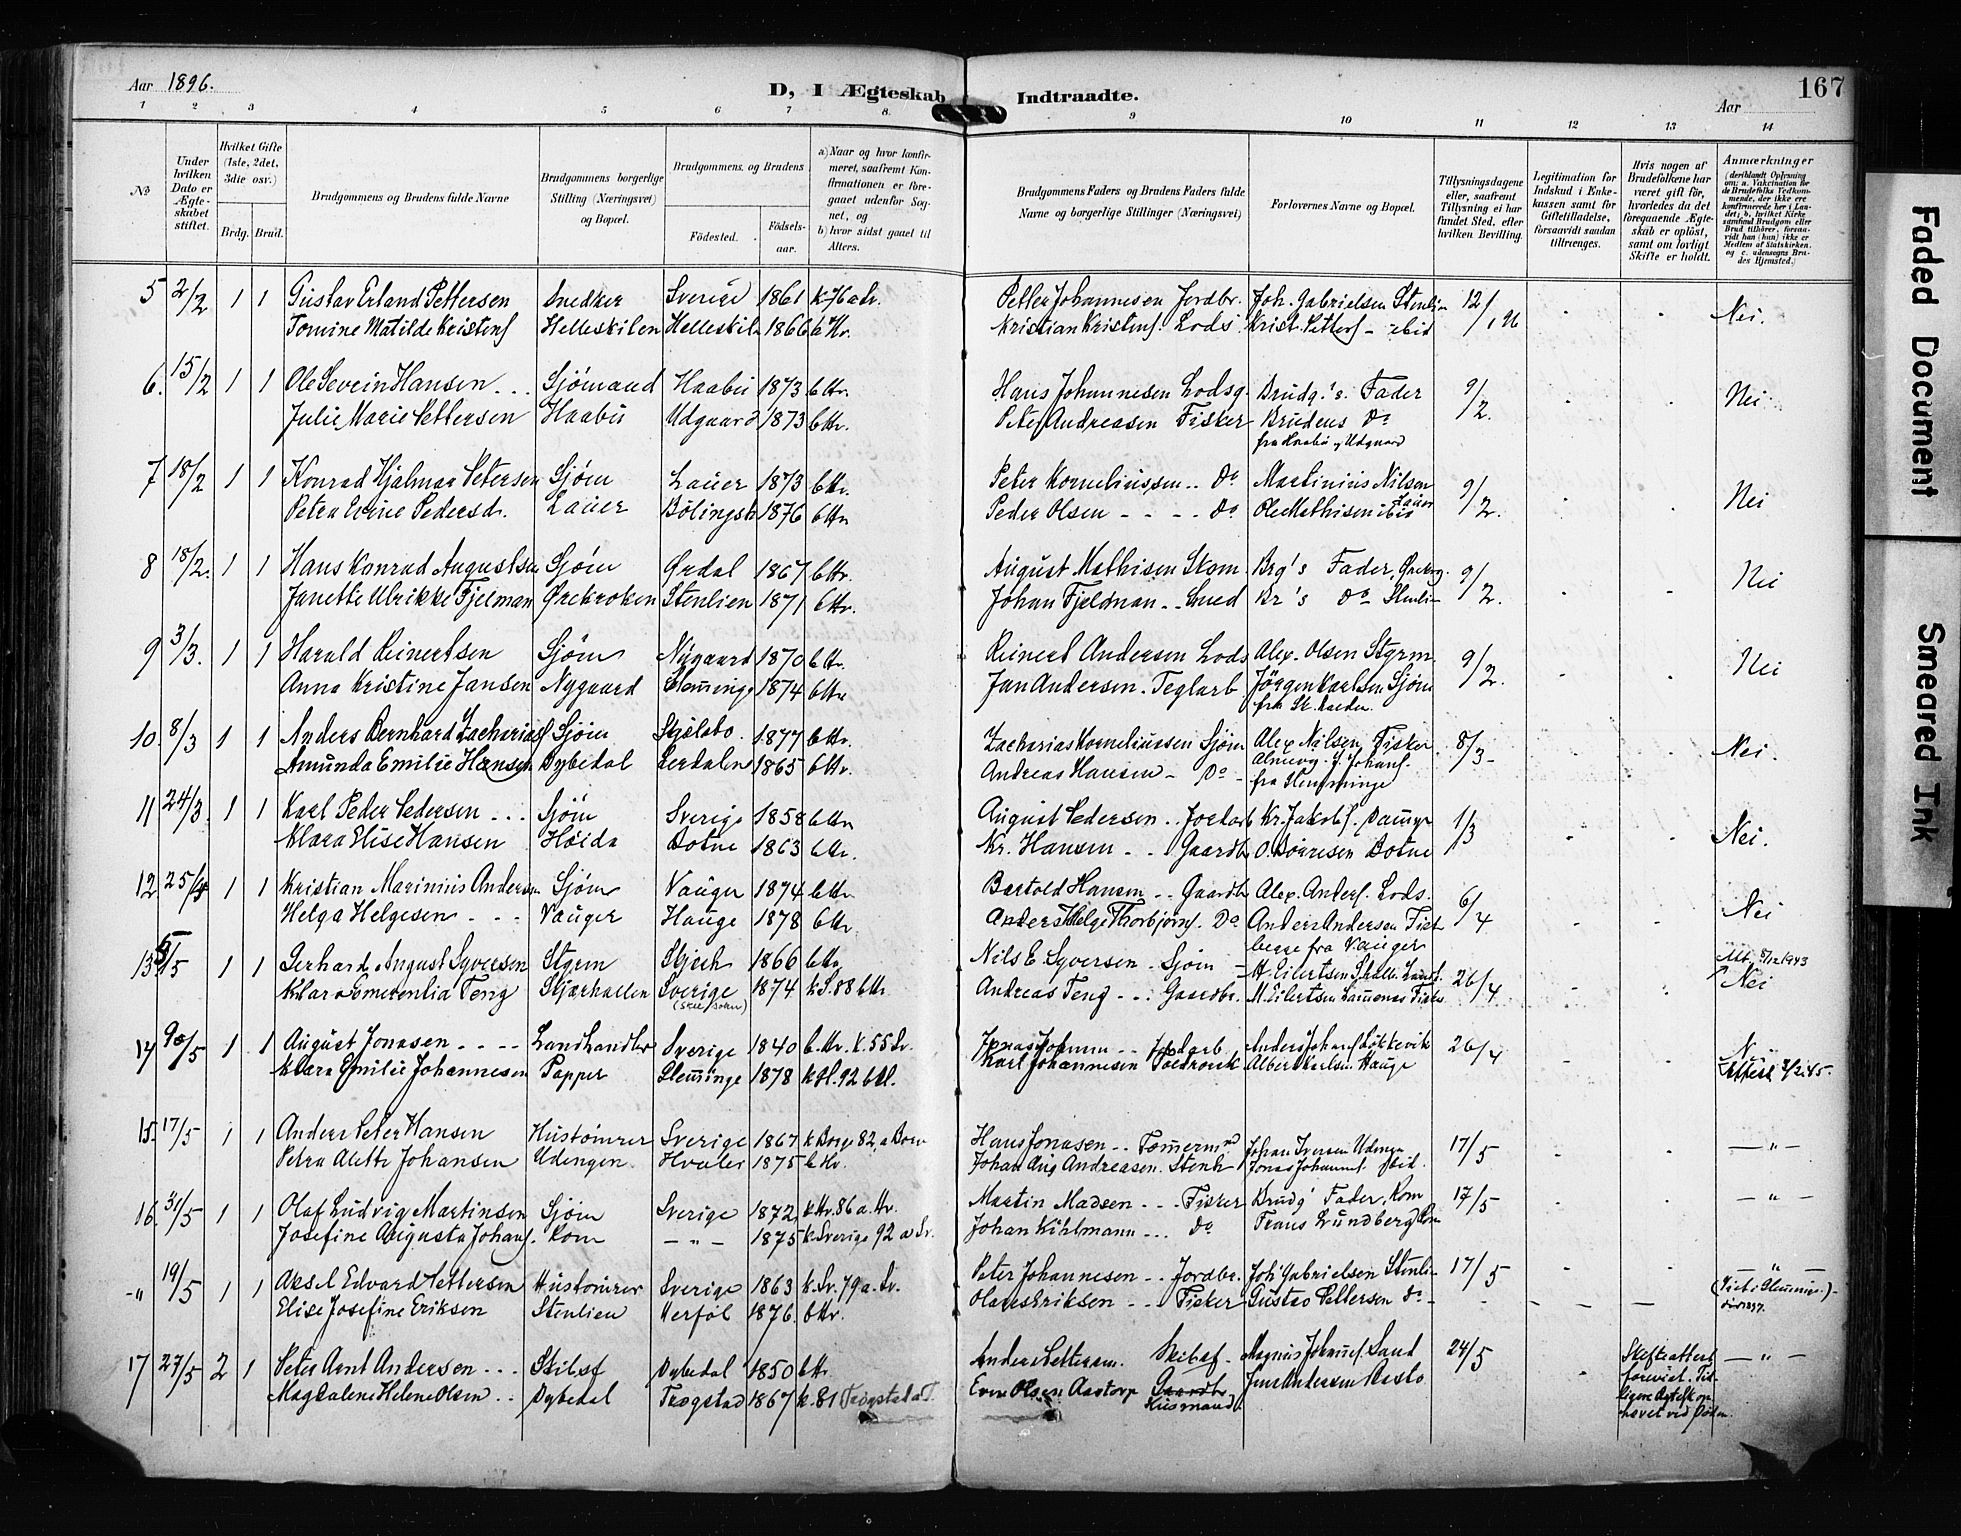 Aar 1896. D, I Ægteskab Indtraadte. Aar 167
1 2 3 4 5 6 7 8. 9 10 11 12 13 14
No
Under hvilken Dato er Ægteskabet stiftet.
Hvilket Gifte (1ste, 2det, 3die osv.)
Brdg. Brud.
Brudgommens og Brudens fulde Navne
Brudgommens borgerlige Stilling (Næringsvei) og Bopæl.
Brudgommens. og Brudens
Fødested. Fødselsaar.
a) Naar og hvor konfirmeret, saafremt Konfirmationen er foregaaet udenfor Sognet, og
b) hvor sidst gaaet til Alters.
Brudgommens Faders og Brudens Faders fulde Navne og borgerlige Stillinger (Næringsvei)
Forlovernes Navne og Bopæl.
Tillysningsdagene eller, saafremt Tillysning ei har fundet Sted, efter hvilken Bevilling.
Legitimation for Indskud i Enkekassen samt for Giftetilladelse, forsaavidt saadan tiltrænges.
Hvis nogen af Brudefolkene har været gift før, hvorledes da det foregaaende Ægteskab er opløst, samt om lovligt Skifte er holdt.
Anmærkninger (deriblandt Oplysning om: a. Vakcination for de Brudefolks Vedkommende, der ikke ere konfirmerede her i Landet; b. hvilket Kirkesamfund Brudgom eller Brud tilhører, forsaavidt han (hun) ikke er Medlem af Statskirken, og c. udensogns Brudes Hjemsted.)
5 2/2 1 1 Gustav Erland Pettersen Snedker Sverige 1861 k 76 a Sv. Petter Johannesen Jordbr. Joh. Gabrielsen Stenli- 12/1 Nei.
Tomine Matilde Kristens Helleskilen Helleskil 1866 b Hv. Kristian Kristens. Lods Krist. Petters - ibid
6. 15/2 1 1 Ole Severin Hansen Sjømand Haabu 1873 b Hv. Hans Johannesen Lodsg. Brudg.'s. Fader 9/2. Nei.
Julie Marie Pettersen Haabu Udgaard 1873 b Hv. Andreasen Fisker Brudens Do
fra Haabu og Udgaard
7 18/2 1 1 Konrad Hjalmar Petersen Sjøm Lauer 1873 b Hv. Peter Korneliussen Do Martinius Nilsen 9/2. Nei
Petra Evine Pedersd. Lauer Bølingsh 1876 b Hv Peder Olsen Do Ole Mathisen ibid Lauer
8 18/2. 1 1 Hans Konrad Augustsen Sjøm Ørdal 1867 b Hv. August Mathisen Skom Brg's Fader, 9/2. Nei
Janette Ulrikke Fjelman Ørekroken Stenlien 1871 b Hv. Johan Fjeldman Smed Br's Do Stenli-
9 3/3. 1 1 Harald Reinertsen Sjøm Nygaard 1870 b Hv. Reinert Andersen Lods Alex. Olsen Styrm. 9/2. Nei
Anna Kristine Jansen Nygaard Flemminge 1874 b Hv Jan Andersen. Teglarb Jørgen Karlsen Sjøm
10. 8/3 1 1 Anders Bernhard Zacharias Sjøm Skjelsbo 1877 b Hv. Zacharias Korneliussen Sjøm Alex Nilsen Fisker 8/3 Nei.
Amunda Emilie Hansen Dybedal Lerdalen 1865 b Hv. Andreas Hansen Do
fra Flemminge
11 24/3 1 1 Karl Peder Pedersen Sjøm Sverige 1858 b Hv August Pedersen Jordarb Kr. Jakobs. 1/3 Nei.
Klara Elise Hansen Høida Botne 1863 b Hv. Kr. Hansen Gaardb O. Børresen Botne
12 25/4 1 1 Kristian Marinius Andersen Sjøm Vauger 1874 b Hv Bertold Hansen Gaardb Alex. Anders. Lods. 6/4 Nei
Helga Helgesen Vauger Hauge 1878 b Hv Anders Helge Thorbjørns. Do Anders Andersen Fisk
begge fra Vauger
13 5/5 1 1 Gerhard August Syversen Styrm Skjech 1866 b Hv Nils E Syversen Sjøm H. Eilertsen 26/4 8/12 1943
Klara Emerentia Teng Skjærhallen Sverige 1874 k S. 88 b Hv. Andreas Teng Gaardbr. M. Eilertsen Fisker Nei
14 /5 1 1 August Jonasen Landhandler Sverige 1840 b. Hv. k. 55 Sv. Jonas Jordarb Anders Johans Løkkevik 26/4
Klara Emilie Johannesen Papper Flemminge 1878 k H. 92 b H. Karl Johannesen Albert Karlsen Hauge 45.
15. 17/5 1 1 Anders Peter Hansen Hustømrer Sverige 1867 k Borge 82, a Borge Hans Jonasen Tømerm Johan Iversen Udenge 17/5 — " —
Petra Alette Johansen Udengen Hvaler 1875 b Hv. Johan Aug Andreasen. Stenh Jonas Johannes. ibid.
16. 31/5 1 1 Olaf Ludvig Martinsen Sjøm Sverige 1872 k Hv. 86 a. Hv. Martin Madsen Fisker Brudg' Fader, Rom 17/5 — " —
Josefine Augusta Johans. Rom — " — 1875 k Sverige 92 a Sv. Johan Kihlmann Do Frans Lundberg Rom
" 19/5 1 1 Aksel Edvard Pettersen Hustømrer Sverige 1863 k. Sv. 79 a. Sv. Peter Johannesen Jordbr. Joh Gabrielsen Stenli- 17/5 "
Elise Josefine Eriksen Stenlien Herføl 1876. b Hv. Olaves Eriksen Fisker Gustav Pettersen Do 1897.
17 27/5 2 1 Peter Arnt Andersen Skibsf Dybedal 1850 b Hv Anders Pettersen. Skibsf Magnus Johans. Sand 24/5 Skifteattest forevist. Tidligere Ægtesk ophævet ved Døden. — " —
Magdalene Helene Olsen Dybedal Trøgstad 1867 k. 81 Trøgstad a T. Even Olsen Aastorp Gaardbr Jens Andersen Rasto
Husmand
Faded Document
Smeared Ink